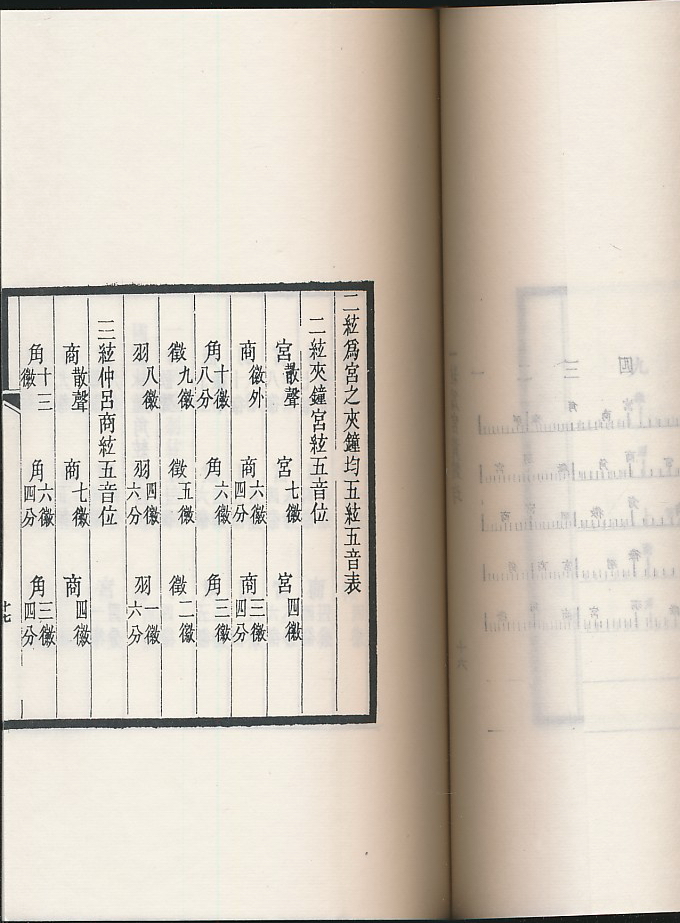 二絃爲宮之夾鐘均五絃五音表
二絃夾鐘宮絃五音位
宮散聲 宮七徽 宮四徽
商徽外 商六徽四分 商三徽四分
角十徽八分 角六徽 角三徽
徵九徽 徵五徽 徵二徽
羽八徽 羽四徽六分 羽一徽六分
三絃仲呂商絃五音位
商散聲 商七徽 商四徽
角十三徽 角六徽四分 角三徽四分
十七